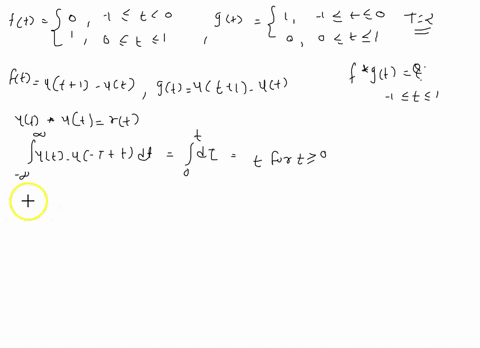 f(t) = { 0, -1 ≤ t < 0 g(t) = { 1, -1 ≤ t ≤ 0 T=2
1, 0 ≤ t ≤ 1 , 0, 0 ≤ t ≤ 1
f(t) = u(t+1) - u(t) , g(t) = u(t+1) - u(t) f * g(t) = ?
-1 ≤ t ≤ 1
u(t) * u(t) = r(t)
∫_{-∞}^{∞} u(t) - u(-τ + t) dt = ∫_{0}^{t} dτ = t for t ≥ 0
+